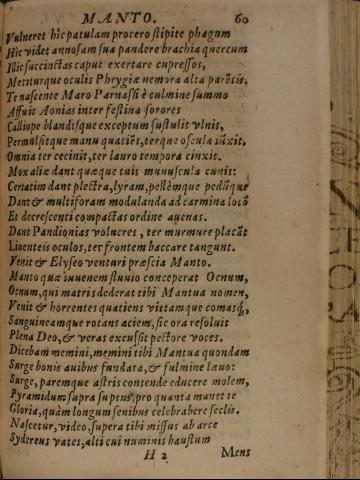 MANTO. 60
Vulneret hic patulam procero stipite phagum
Hic videt annosam sua pandere brachia quercum
Illic succinctas caput exertare cupressos,
Metiturque oculis Phrygiæ nemora alta parẽtis.
Te nascente Maro Parnassi è culmine summo
Affuit Aonias inter festina sorores
Calliope blandisque exceptum sustulit vlnis,
Permulsitque manu quatiẽs, terque oscula iũxit,
Omnia ter cecinit, ter lauro tempora cinxit.
Mox aliæ dant quæque tuis munuscula cunis:
Certatim dant plectra, lyram, pellẽmque pedũque
Dant & multiforam modulanda ad carmina lotõ
Et decrescenti compactas ordine auenas.
Dant Pandionias volucres, ter murmure placãt
Liuenteis oculos, ter frontem baccare tangunt.
Venit & Elyseo venturi præscia Manto.
Manto quæ iuuenem fluuio conceperat Ocnum,
Ocnum, qui matris dederat tibi Mantua nomen,
Venit & horrentes quatiens vittamque comasq́;
Sanguineamque rotans aciem, sic ora resoluit
Plena Deo, & veras excussit pectore voces.
Dicebam memini, memini tibi Mantua quondam
Surge bonis auibus fundata, & fulmine lauo:
Surge, paremque astris contende educere molem,
Pyramidum supra suptus, pro quanta manet te
Gloria, quàm longum senibus celebrabere seclis.
Nascetur, video, supera tibi missus ab arce
Sydereus vates, alti cui numinis haustum
H 2 Mens